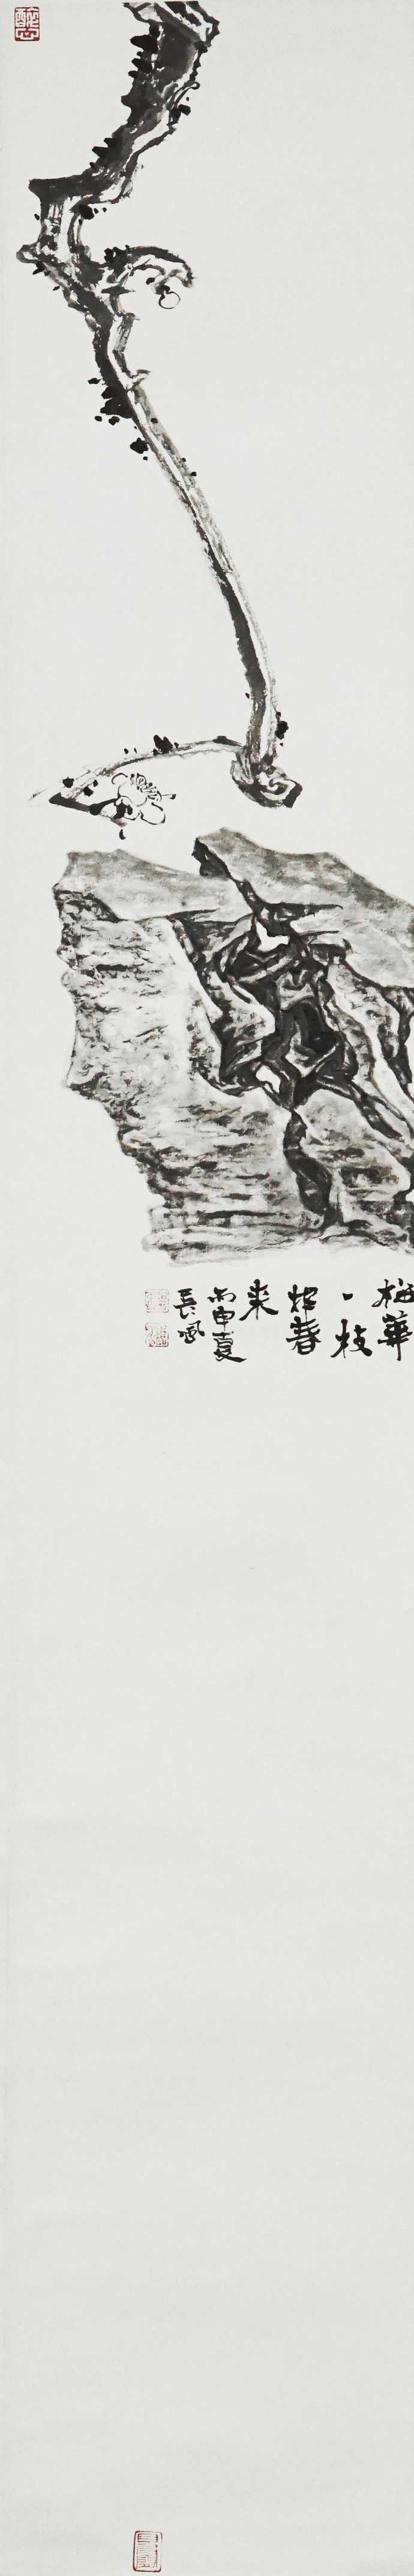 梅華
一枝
報春
来
丙申夏
長風